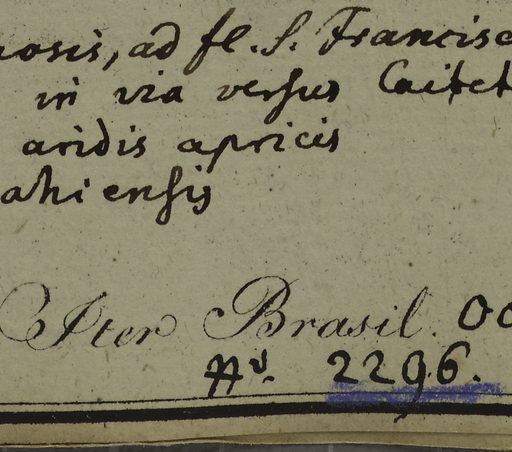 nosis, ad fl. S. Francisc
in via versus Caitet
aridis apricis
ahiensis
Iter Brasil. Oc
2296.